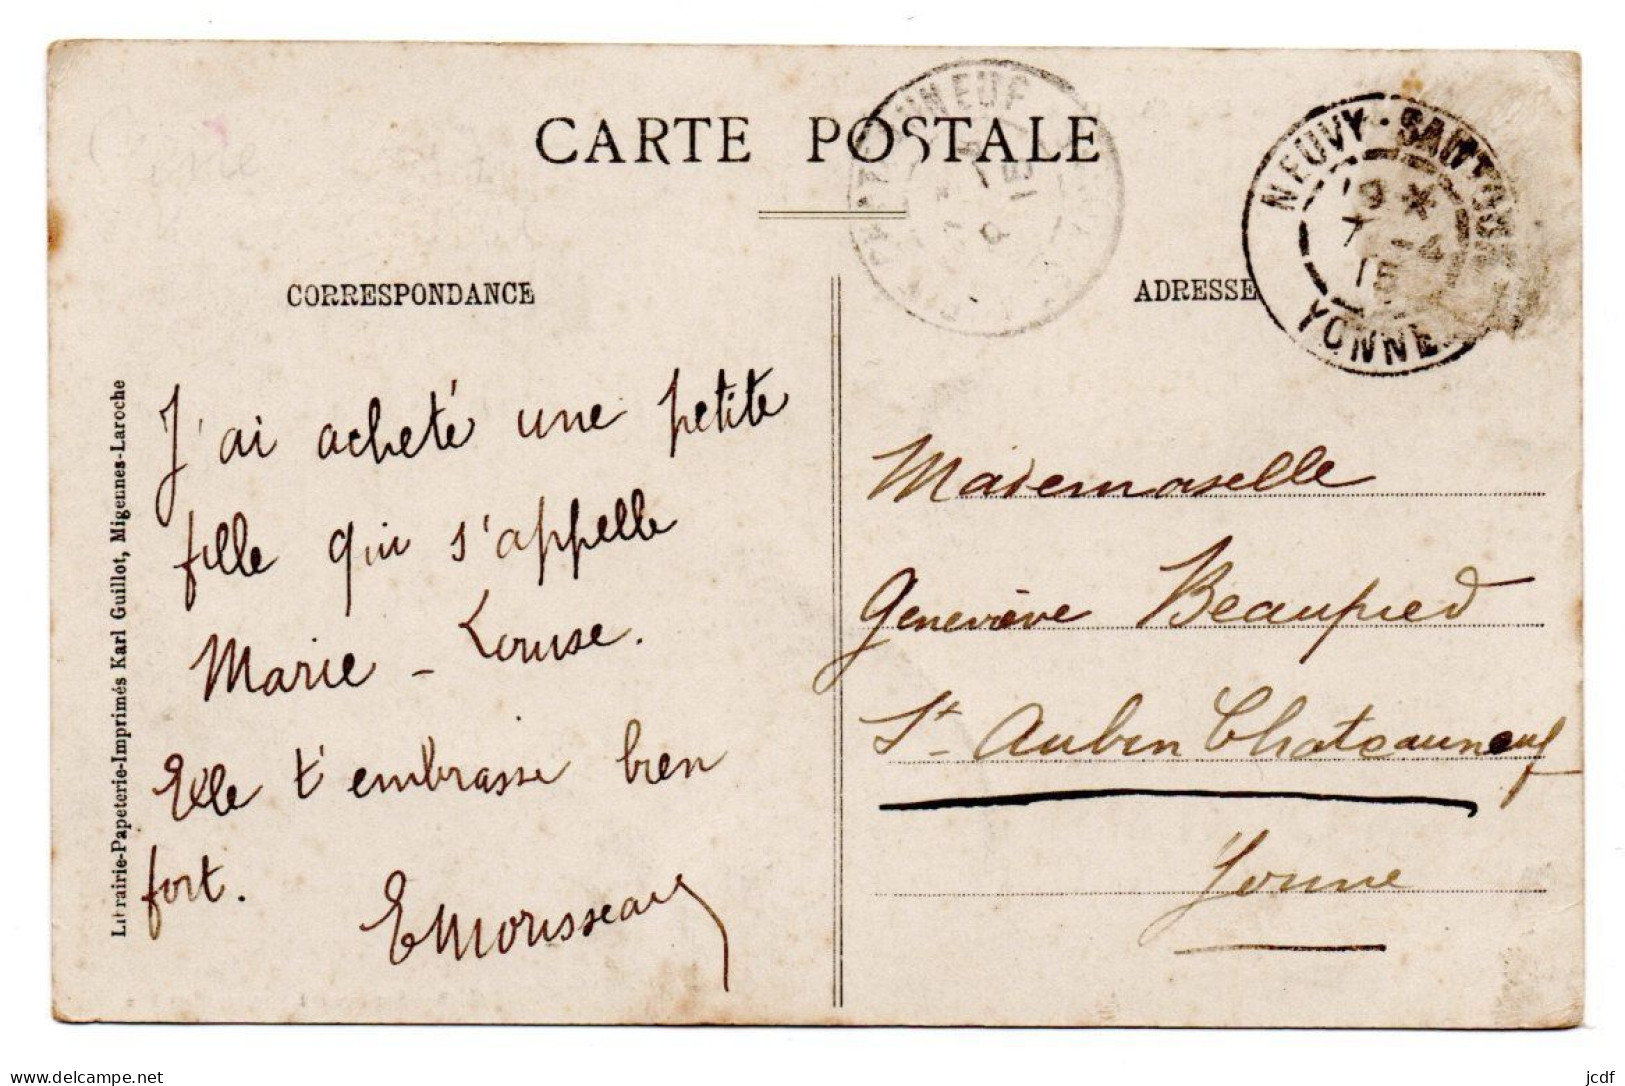 CARTE POSTALE
NEUVY-SAUTOUR
19 *
7 -4
15
YONNE
CORRESPONDANCE
ADRESSE
J'ai acheté une petite
fille qui s'appelle
Marie - Louise.
Elle t'embrasse bien
fort.
E Moisseau
Mademoiselle
Geneviève Beaupied
St Aubin Chateauneuf
Yonne
Librairie-Papeterie-Imprimés Karl Guillot, Migennes-Laroche
delcampe.net
jcdf